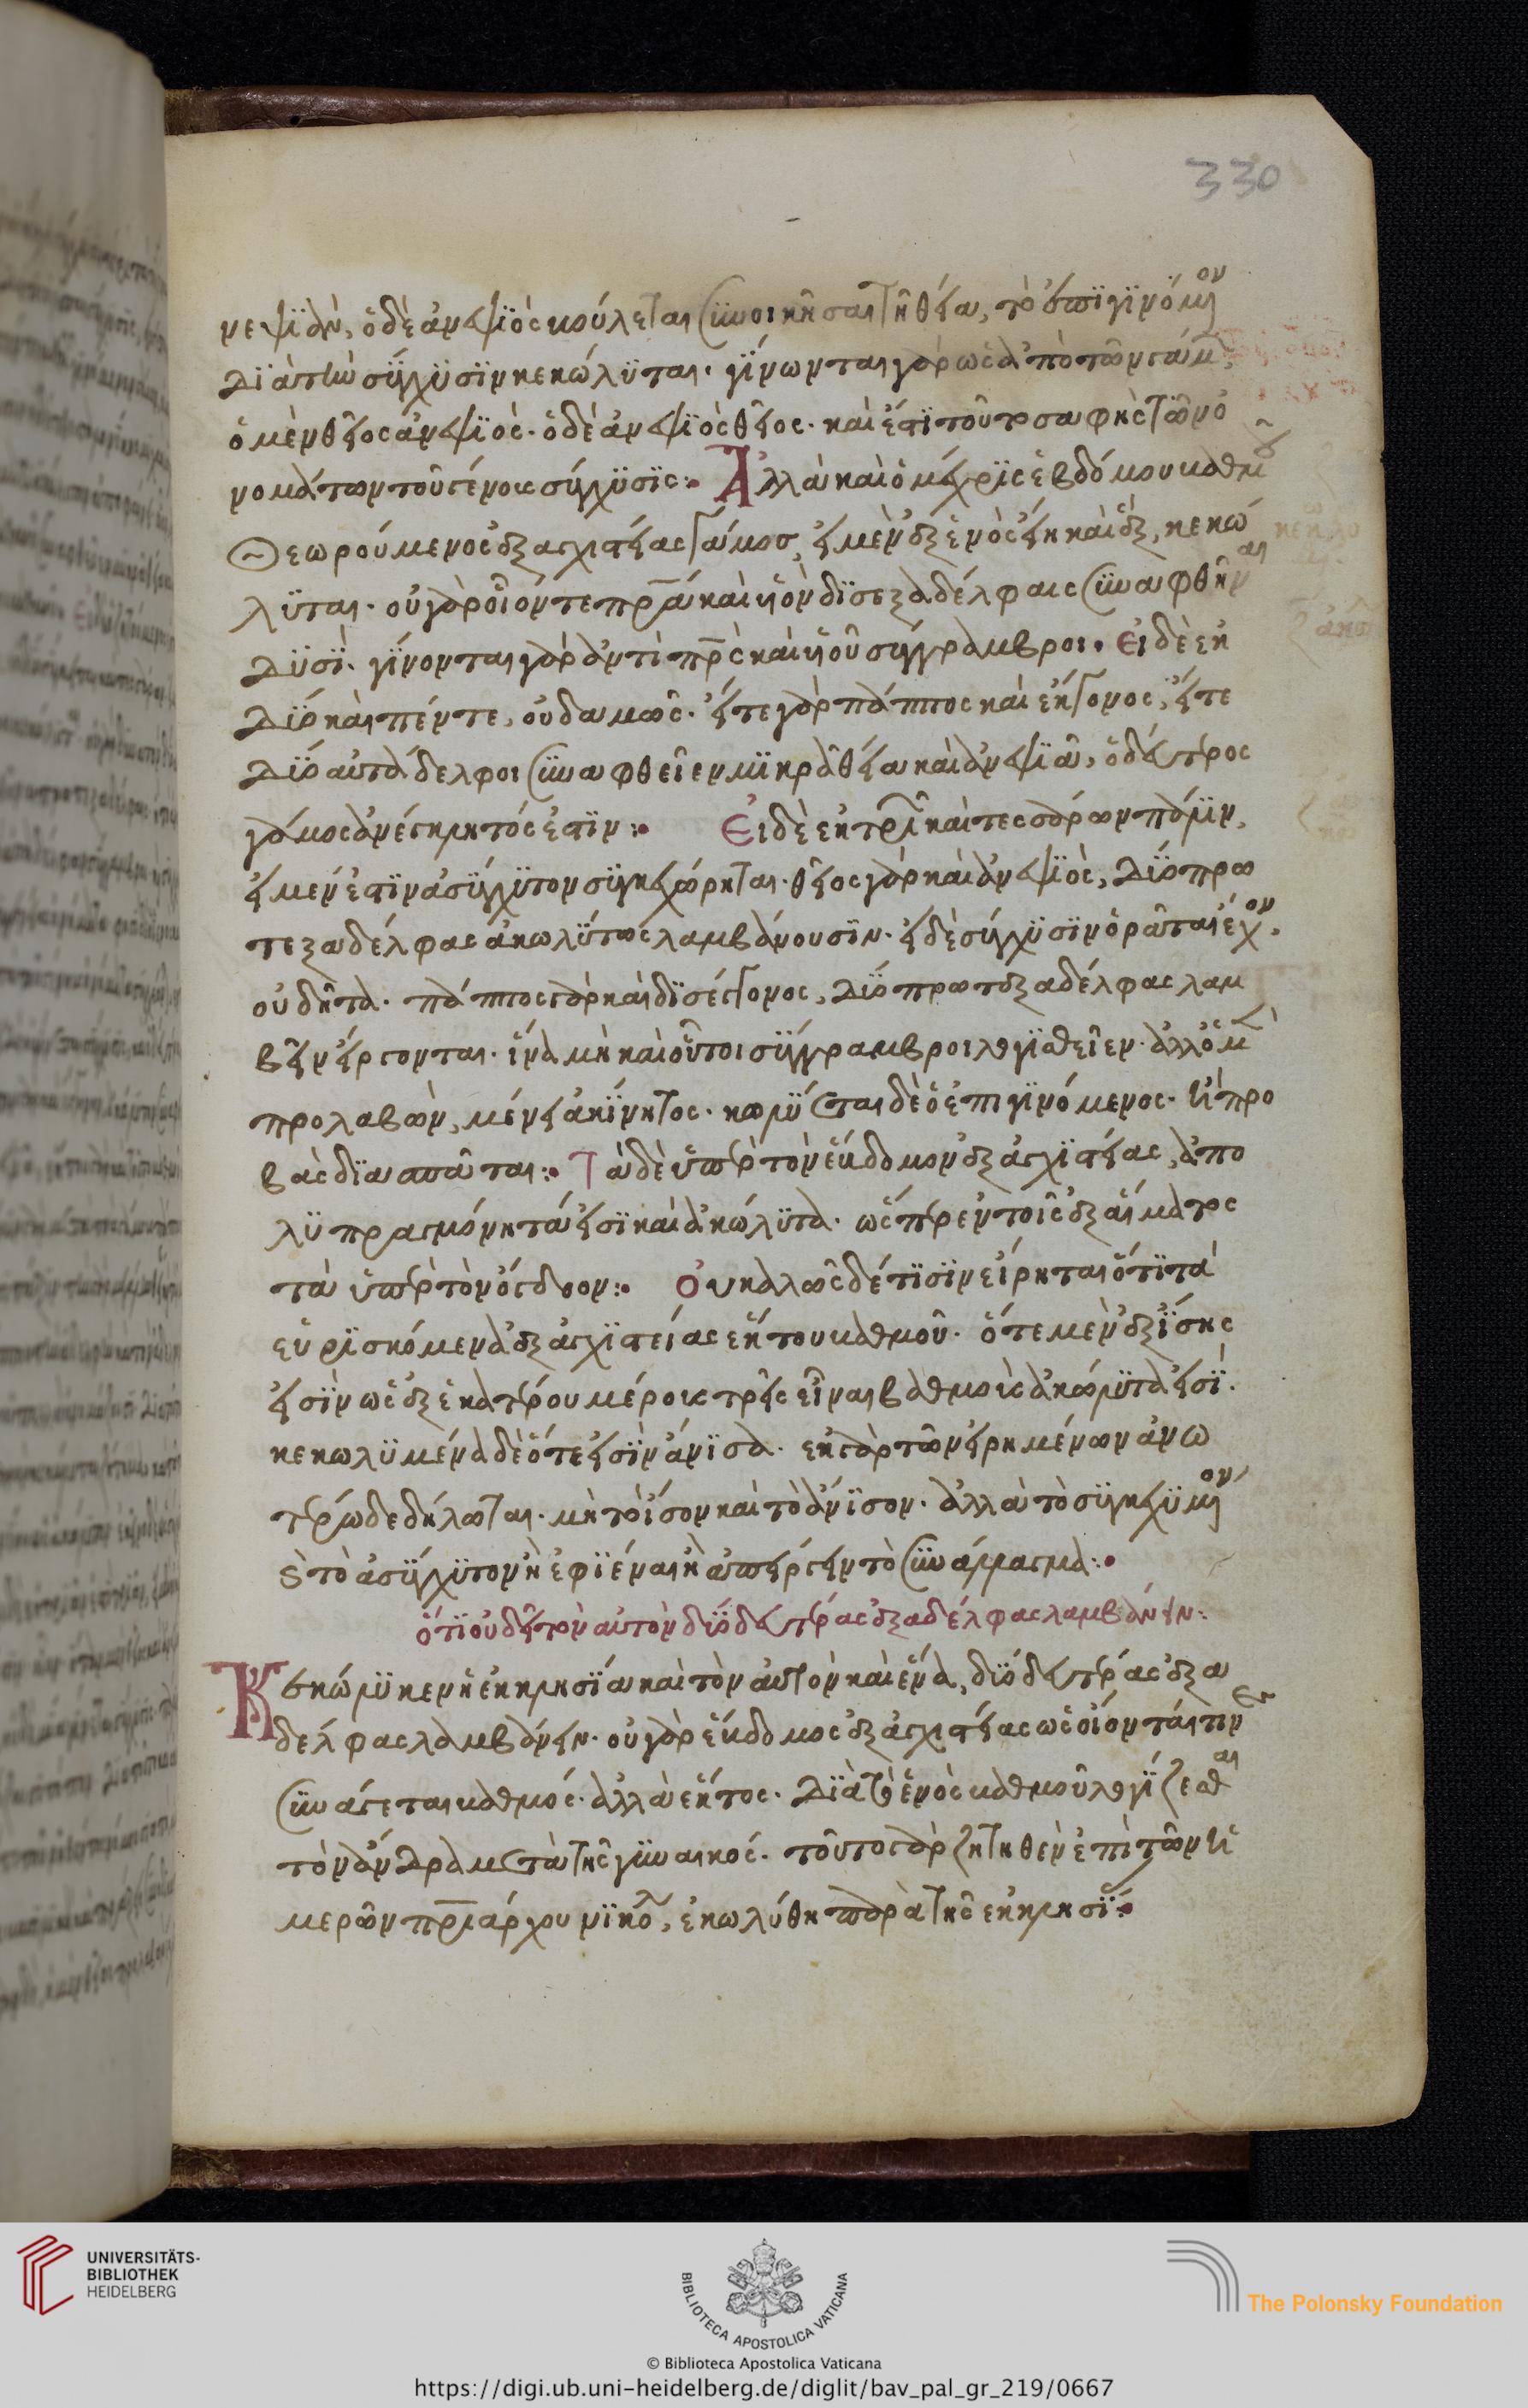 330
νεψϊὰν, ὁ δὲ ἀνεψϊὸς βούλεται συνοικῆσαι τῆ θεία, τὸ ἐπϊγϊνόμενον
δϊὰ τὴν σύγχϋσϊν κεκώλϋται· γΐνωνται γὰρ ὡς ἀπὸ τῶν γάμ
ὁ μὲν θεῖος ἀνεψϊὸς· ὁ δὲ ἀνεψϊὸς θεῖος· καὶ ἔστϊ τοῦτο σαφὴς τῶν ὀ
νομάτων τοῦ γένους σύγχϋσϊς: Ἀλλὰ καὶ ὁ μέχρϊς ἑβδόμου βαθμοῦ
Θεωρούμενος ἐξ αγχιστείας γάμος, εἰ μὲν ἐξ ἑνὸς εἴη καὶ ἓξ, κεκώ
λϋται· οὐ γὰρ οἷόν τε πρα καὶ υἱὸν δϊσεξαδέλφαις συναφθῆναι
δϋσΐ· γΐνονται γὰρ ἀντὶ πρς καὶ υἱοῦ σύγγραμβροι· Εἰ δὲ ἐκ
δύο καὶ πέντε, οὐδαμῶς· εἴτε γὰρ πάππος καὶ ἔκγονος, εἴτε
δύο αὐτάδελφοι συναφθεῖεν μϊκρᾶ θεία καὶ ἀνεψϊᾶ, ὁ δεύτερος
γάμος ἀνέγκλητός ἐστϊν: Εἰ δὲ ἐκ τριῶν καὶ τεσσάρων πάλϊν,
εἰ μεν ἐστϊν ἀσύγχϋτον συγκεχώρηται· θεῖος γὰρ καὶ ἀνεψϊὸς, δύο πρω
τεξαδέλφας ἀκωλύτως λαμβάνουσϊν· εἰ δὲ σύγχϋσϊν ὁρᾶται ἔχον,
οὐδῆτα· πάππος γὰρ καὶ δϊσέγγονος, δύο πρωτοξαδέλφας λαμ
βεῖν εἴργονται· ἵνα μὴ καὶ οὗτοι σύγγραμβροι λογϊσθεῖεν· ἀλλ' ὁ μὲν
προλαβὼν, μένει ἀκΐνητος· κωλύεται δὲ ὁ ἐπιγϊνόμενος· ἢ προ
βὰς δϊασπᾶται: Τὰ δὲ ὑπὲρ τὸν ἕβδομον ἐξ ἀγχϊστείας, ἀπο
λϋπραγμόνητά εἰσϊ καὶ ἀκώλϋτα· ὥσπερ ἐν τοῖς ἐξ αἵματος
τὰ ὑπὲρ τὸν ὄγδοον: Οὐ καλῶς δέ τϊσϊν εἴρηται ὅτϊ τὰ
εὑρϊσκόμενα ἐξ ἀγχϊστείας ἕκτου βαθμοῦ· ὅτε μὲν ἐξΐσης
εἰσϊν ὡς ἐξ ἑκατέρου μέρους τρεῖς εἶναι βαθμοὺς ἀκώλϋτά εἰσϊ·
κεκωλϋμένα δὲ ὅτε εἰσϊν ἄνϊσα· ἐκ γὰρ τῶν εἰρημένων ἀνω
τέρω δεδήλωται· μὴ τὸ ἴσον καὶ τὸ ἄνϊσον· ἀλλὰ τὸ συγκεχϋμένον
ϛ τὸ ἀσύγχϋτον ἢ ἐφϊέναι ἢ ἀπείργειν τὸ συνάλλαγμα:
ὅτϊ οὐ δεῖ τὸν αὐτὸν δύο δευτέρας ἐξαδέλφας λαμβάνειν:
Κεκώλϋκεν ἡ ἐκκλησΐα καὶ τὸν αὐτὸν καὶ ἕνα, δύο δευτέρας ἐξα
δέλφας λαμβάνειν· οὐ γὰρ ἕβδομος ἐξ ἀγχιστείας ὡς οἴονταί τινες
συνάγεται βαθμός· ἀλλὰ ἕκτος· δϊὰ τὸ ἑνὸς βαθμοῦ λογΐζεσθαι
τὸν ἄνδρα μετὰ τῆς γυναικός· τοῦτο γὰρ ζητηθὲν ἐπὶ τῶν ἡ
μερῶν πριάρχου νϊκολ, ἐκωλύθη παρὰ τῆς ἐκκλησΐ:
UNIVERSITÄTS-
BIBLIOTHEK
HEIDELBERG
BIBLIOTECA APOSTOLICA VATICANA
The Polonsky Foundation
© Biblioteca Apostolica Vaticana
https://digi.ub.uni-heidelberg.de/diglit/bav_pal_gr_219/0667